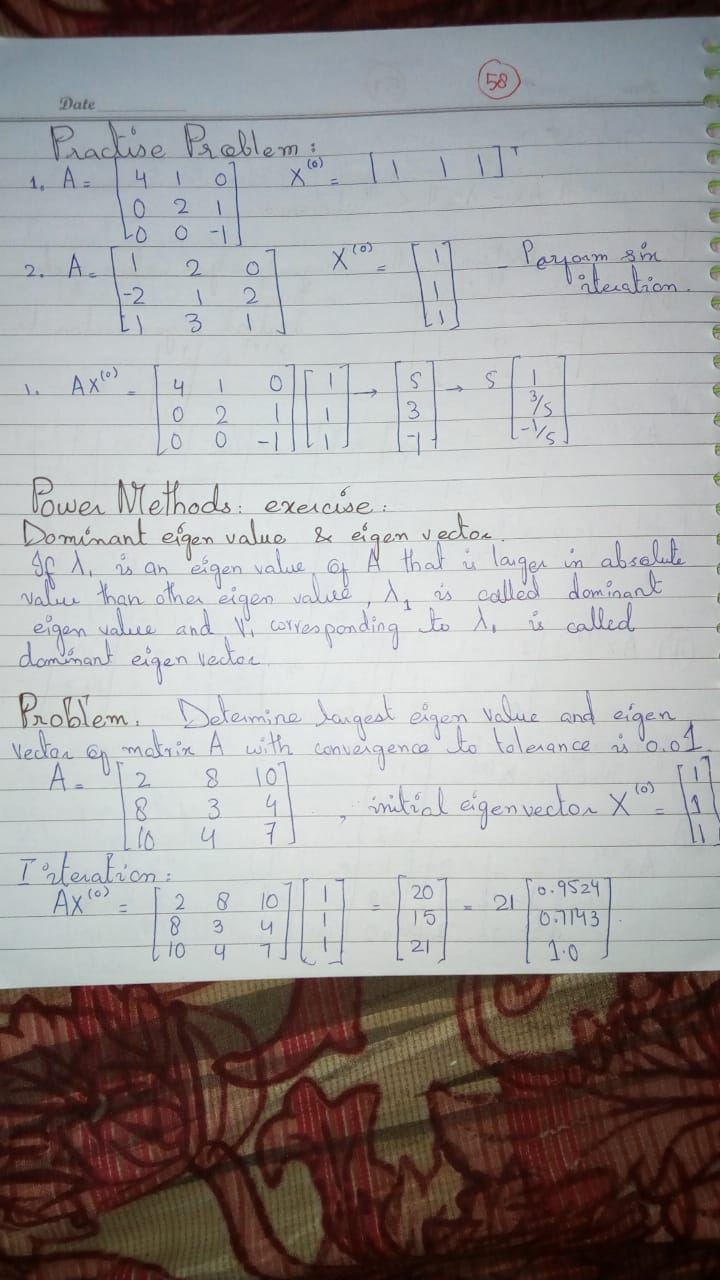 58
Date
Practise Problem:
1. A = [4 1 0; 0 2 1; 0 0 -1] X^(0) = [1 1 1]^T
2. A = [1 2 0; -2 1 2; 1 3 1] X^(0) = [1; 1; 1] - Perform six iteration.
1. AX^(0) = [4 1 0; 0 2 1; 0 0 -1] [1; 1; 1] → [5; 3; -1] → 5 [1; 3/5; -1/5]
Power Methods: exercise:
Dominant eigen value & eigen vector.
If λ₁ is an eigen value of A that is larger in absolute
value than other eigen value, λ₁ is called dominant
eigen value and V₁ corresponding to λ₁ is called
dominant eigen vector.
Problem. Determine largest eigen value and eigen
vector of matrix A with convergence to tolerance is 0.01.
A = [2 8 10; 8 3 4; 10 4 7], initial eigenvector X^(0) = [1; 1; 1]
I iteration:
AX^(0) = [2 8 10; 8 3 4; 10 4 7] [1; 1; 1] = [20; 15; 21] = 21 [0.9524; 0.7143; 1.0].